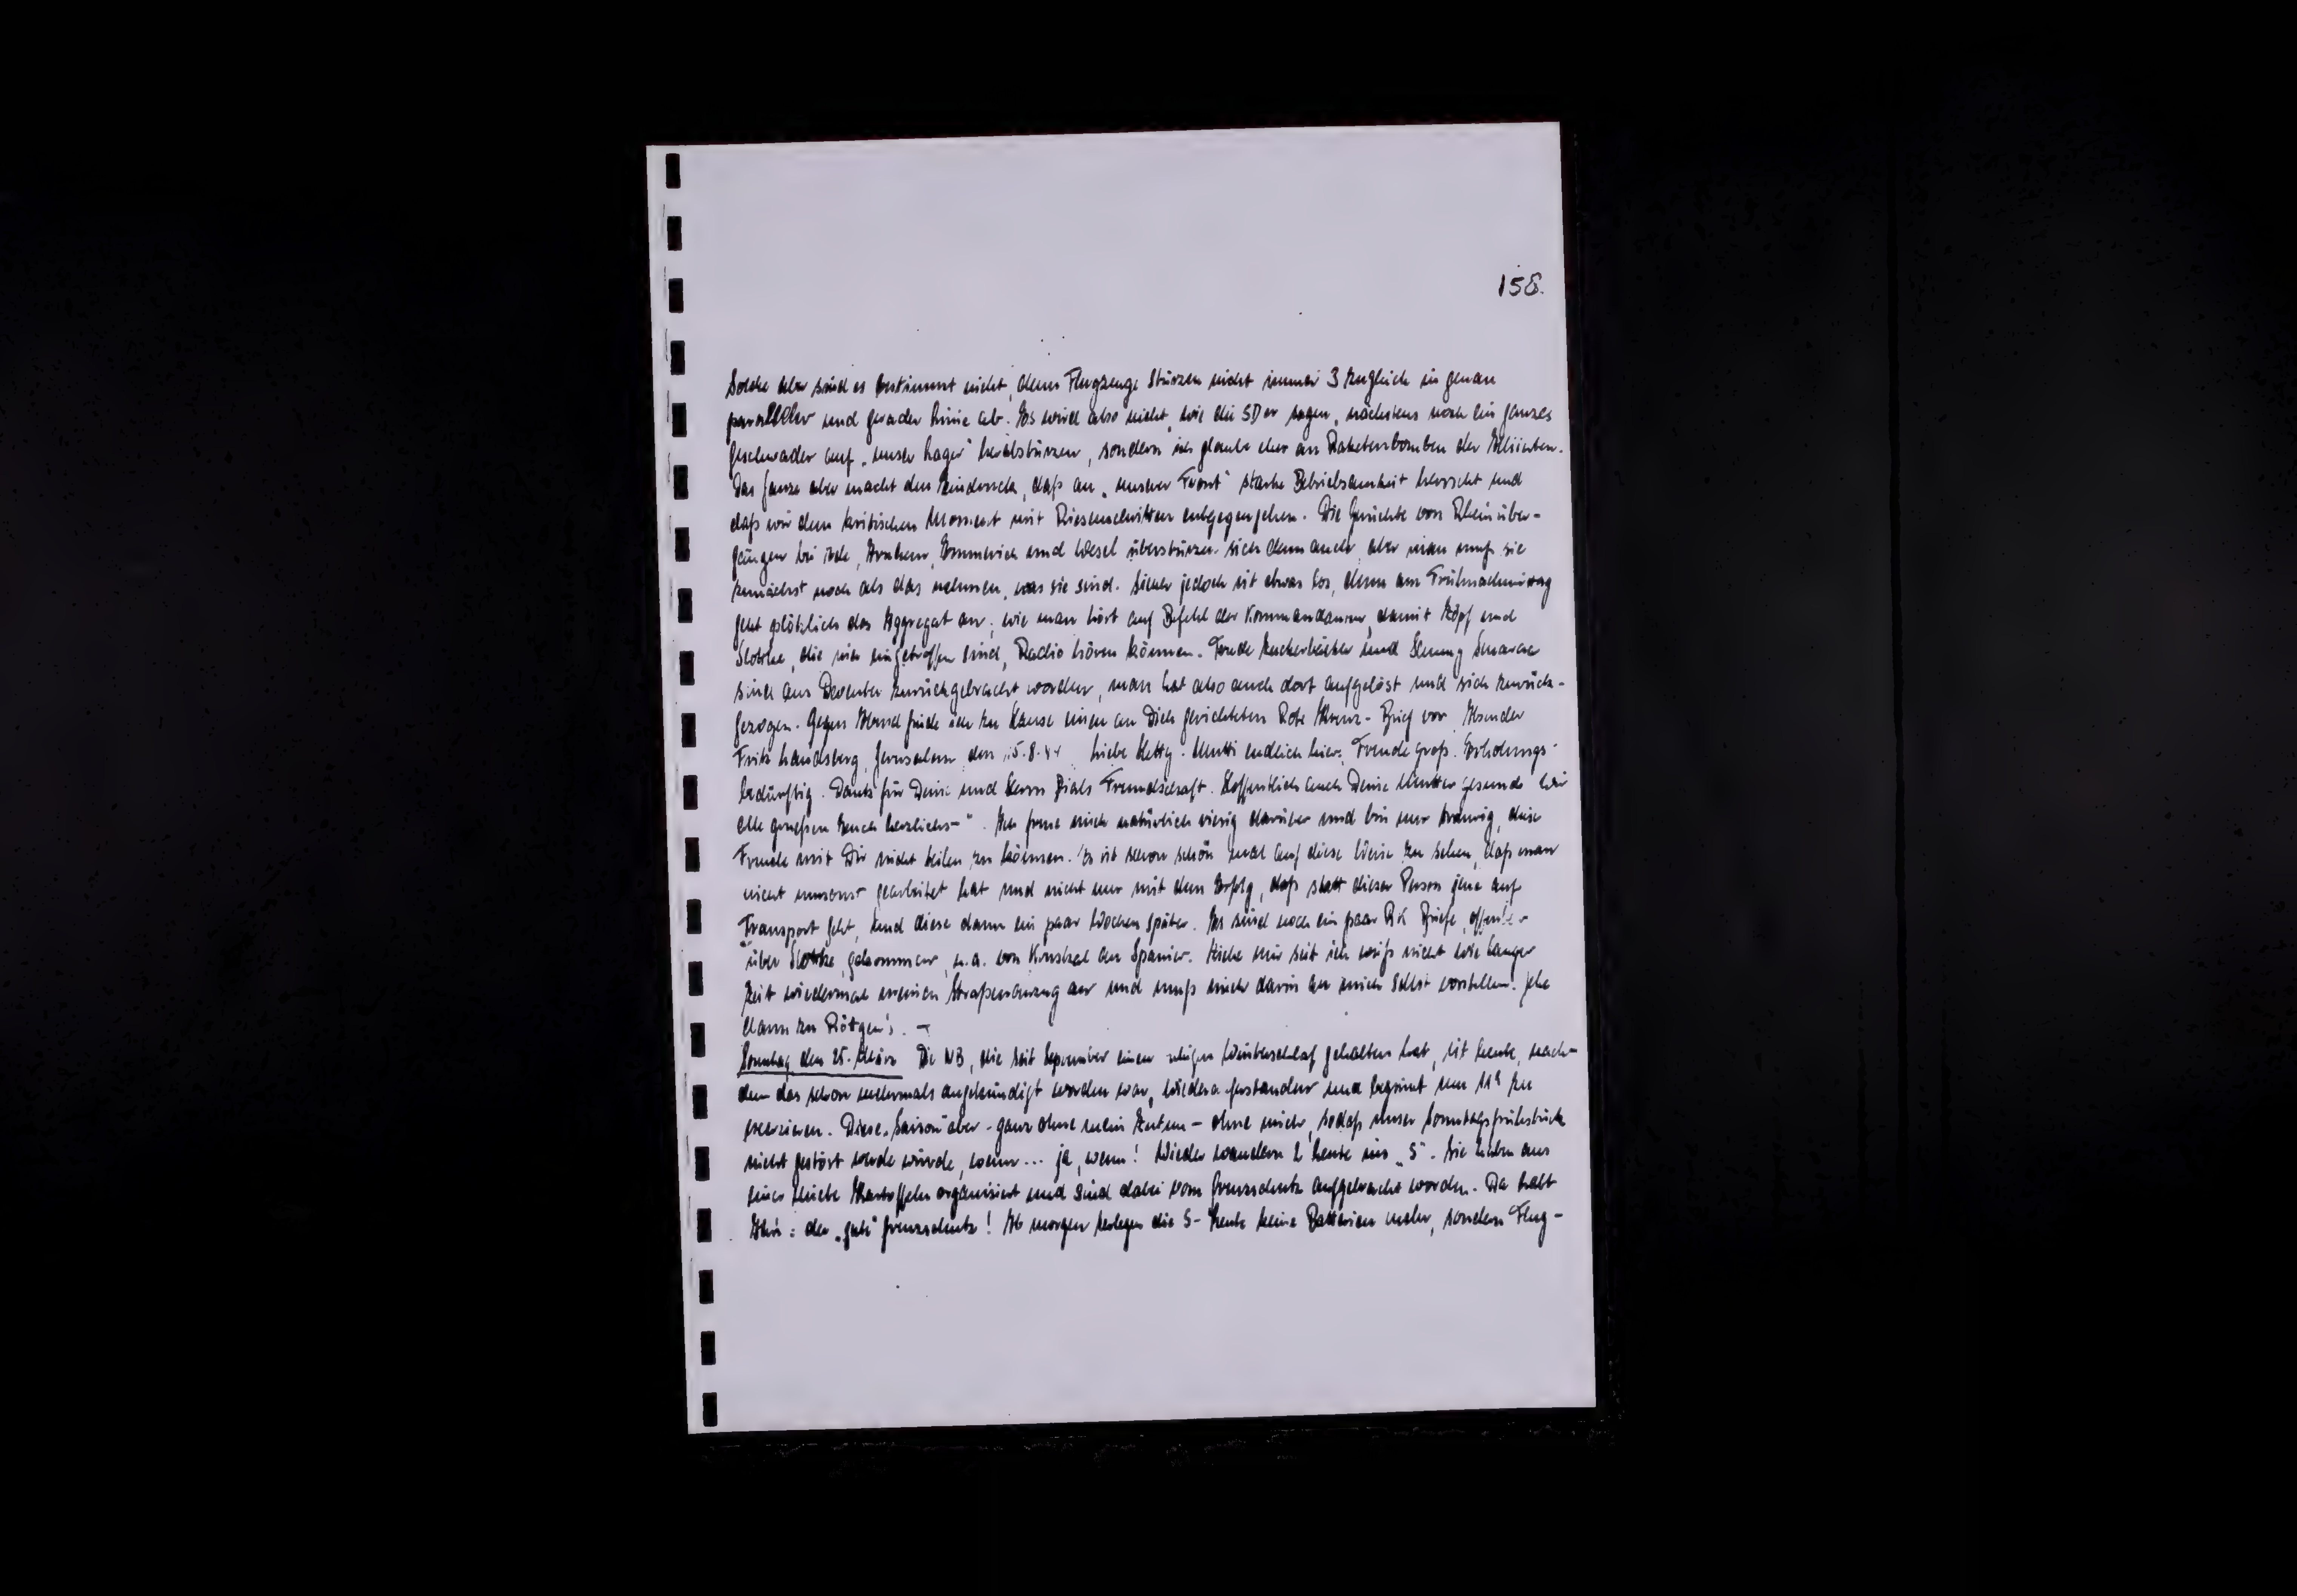 158.
Solche aber sind es bestimmt nicht, denn Flugzeuge stürzen nicht immer 3 zugleich in genau
paralleler und gerader Linie ab. Es wird also nicht, wie die SDer sagen, nächstens noch ein ganzes
Geschwader auf „unser Lager" herabstürzen, sondern ich glaube eher an Raketenbomben der Alliierten.
Das Ganze aber macht den Eindruck, daß an „unserer Front" starke Betriebsamkeit herrscht und
daß wir dem kritischen Moment mit Riesenschritten entgegengehen. Die Gerüchte von Rheinüber-
gängen bei Arnhem, Emmerich und Wesel überstürzen sich denn auch, aber man muß sie
zunächst noch als das nehmen, was sie sind. Sicher jedoch ist etwas los, denn am Frühnachmittag
geht plötzlich das Aggregat an, wie man hört auf Befehl der Kommandantur, damit und
Slottke, die hier eingetroffen sind, Radio hören können. und
sind aus Deventer zurückgebracht worden, man hat also auch dort aufgelöst und sich zurück-
gezogen. Gegen Abend finde ich zu Hause einen an Dich gerichteten Rote Kreuz-Brief vor. Absender
Fritz Landsberg, Jerusalem, den 15.8.44 Liebe Hetty. Mutti endlich hier. Freude groß. Erholungs-
bedürftig. Dank für Deine und Herrn Freundschaft. Hoffentlich auch Deine Mutter gesund. Wir
alle grüßen Euch herzlichst". Ich freue mich natürlich riesig darüber und bin nur traurig, diese
Freude mit Dir nicht teilen zu können. Es ist schon schön mal auf diese Weise zu sehen, daß man
nicht umsonst gearbeitet hat und nicht nur mit dem Erfolg, daß statt dieser Person jene auf
Transport geht, und diese dann ein paar Wochen später. Es sind noch ein paar RK Briefe,
über Slottke, gekommen, u.a. von an Spanier. Ziehe mir seit ich weiß nicht wie langer
Zeit wiedermal meinen Straßenanzug an und muß mich darin an mich selbst vorstellen. Gehe
dann zu Röttgen's. —
Sonntag, den 25. März Die NB, die seit September einen ruhigen Winterschlaf gehalten hat, ist heute, nach-
dem das schon mehrmals angekündigt worden war, wiederauferstanden und beginnt um 11h zu
exerzieren. Diese „Saison" aber - ganz ohne mein Zutun - ohne mich, sodaß unser Sonntagsfrühstück
nicht gestört würde, wenn ... ja, wenn! Wieder wandern 2 Leute ins „S". Sie haben aus
einer Miete Kartoffeln organisiert und sind dabei vom Grenzschutz aufgebracht worden. Da habt
Ihr's: der „gute" Grenzschutz! Ab morgen zerlegen die S-Leute keine Batterien mehr, sondern Flug-